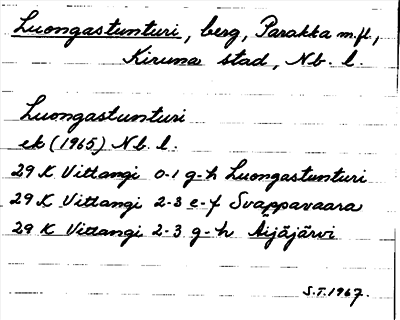 Luongastunturi, berg, Parakka m.fl.,
Kiruna stad, Nb. l.
Luongastunturi
ek (1965) Nb. l.
29 K Vittangi 0-1 g-h Luongastunturi
29 K Vittangi 2-3 e-f Svappavaara
29 K Vittangi 2-3 g-h Äijäjärvi
S.T. 1967.